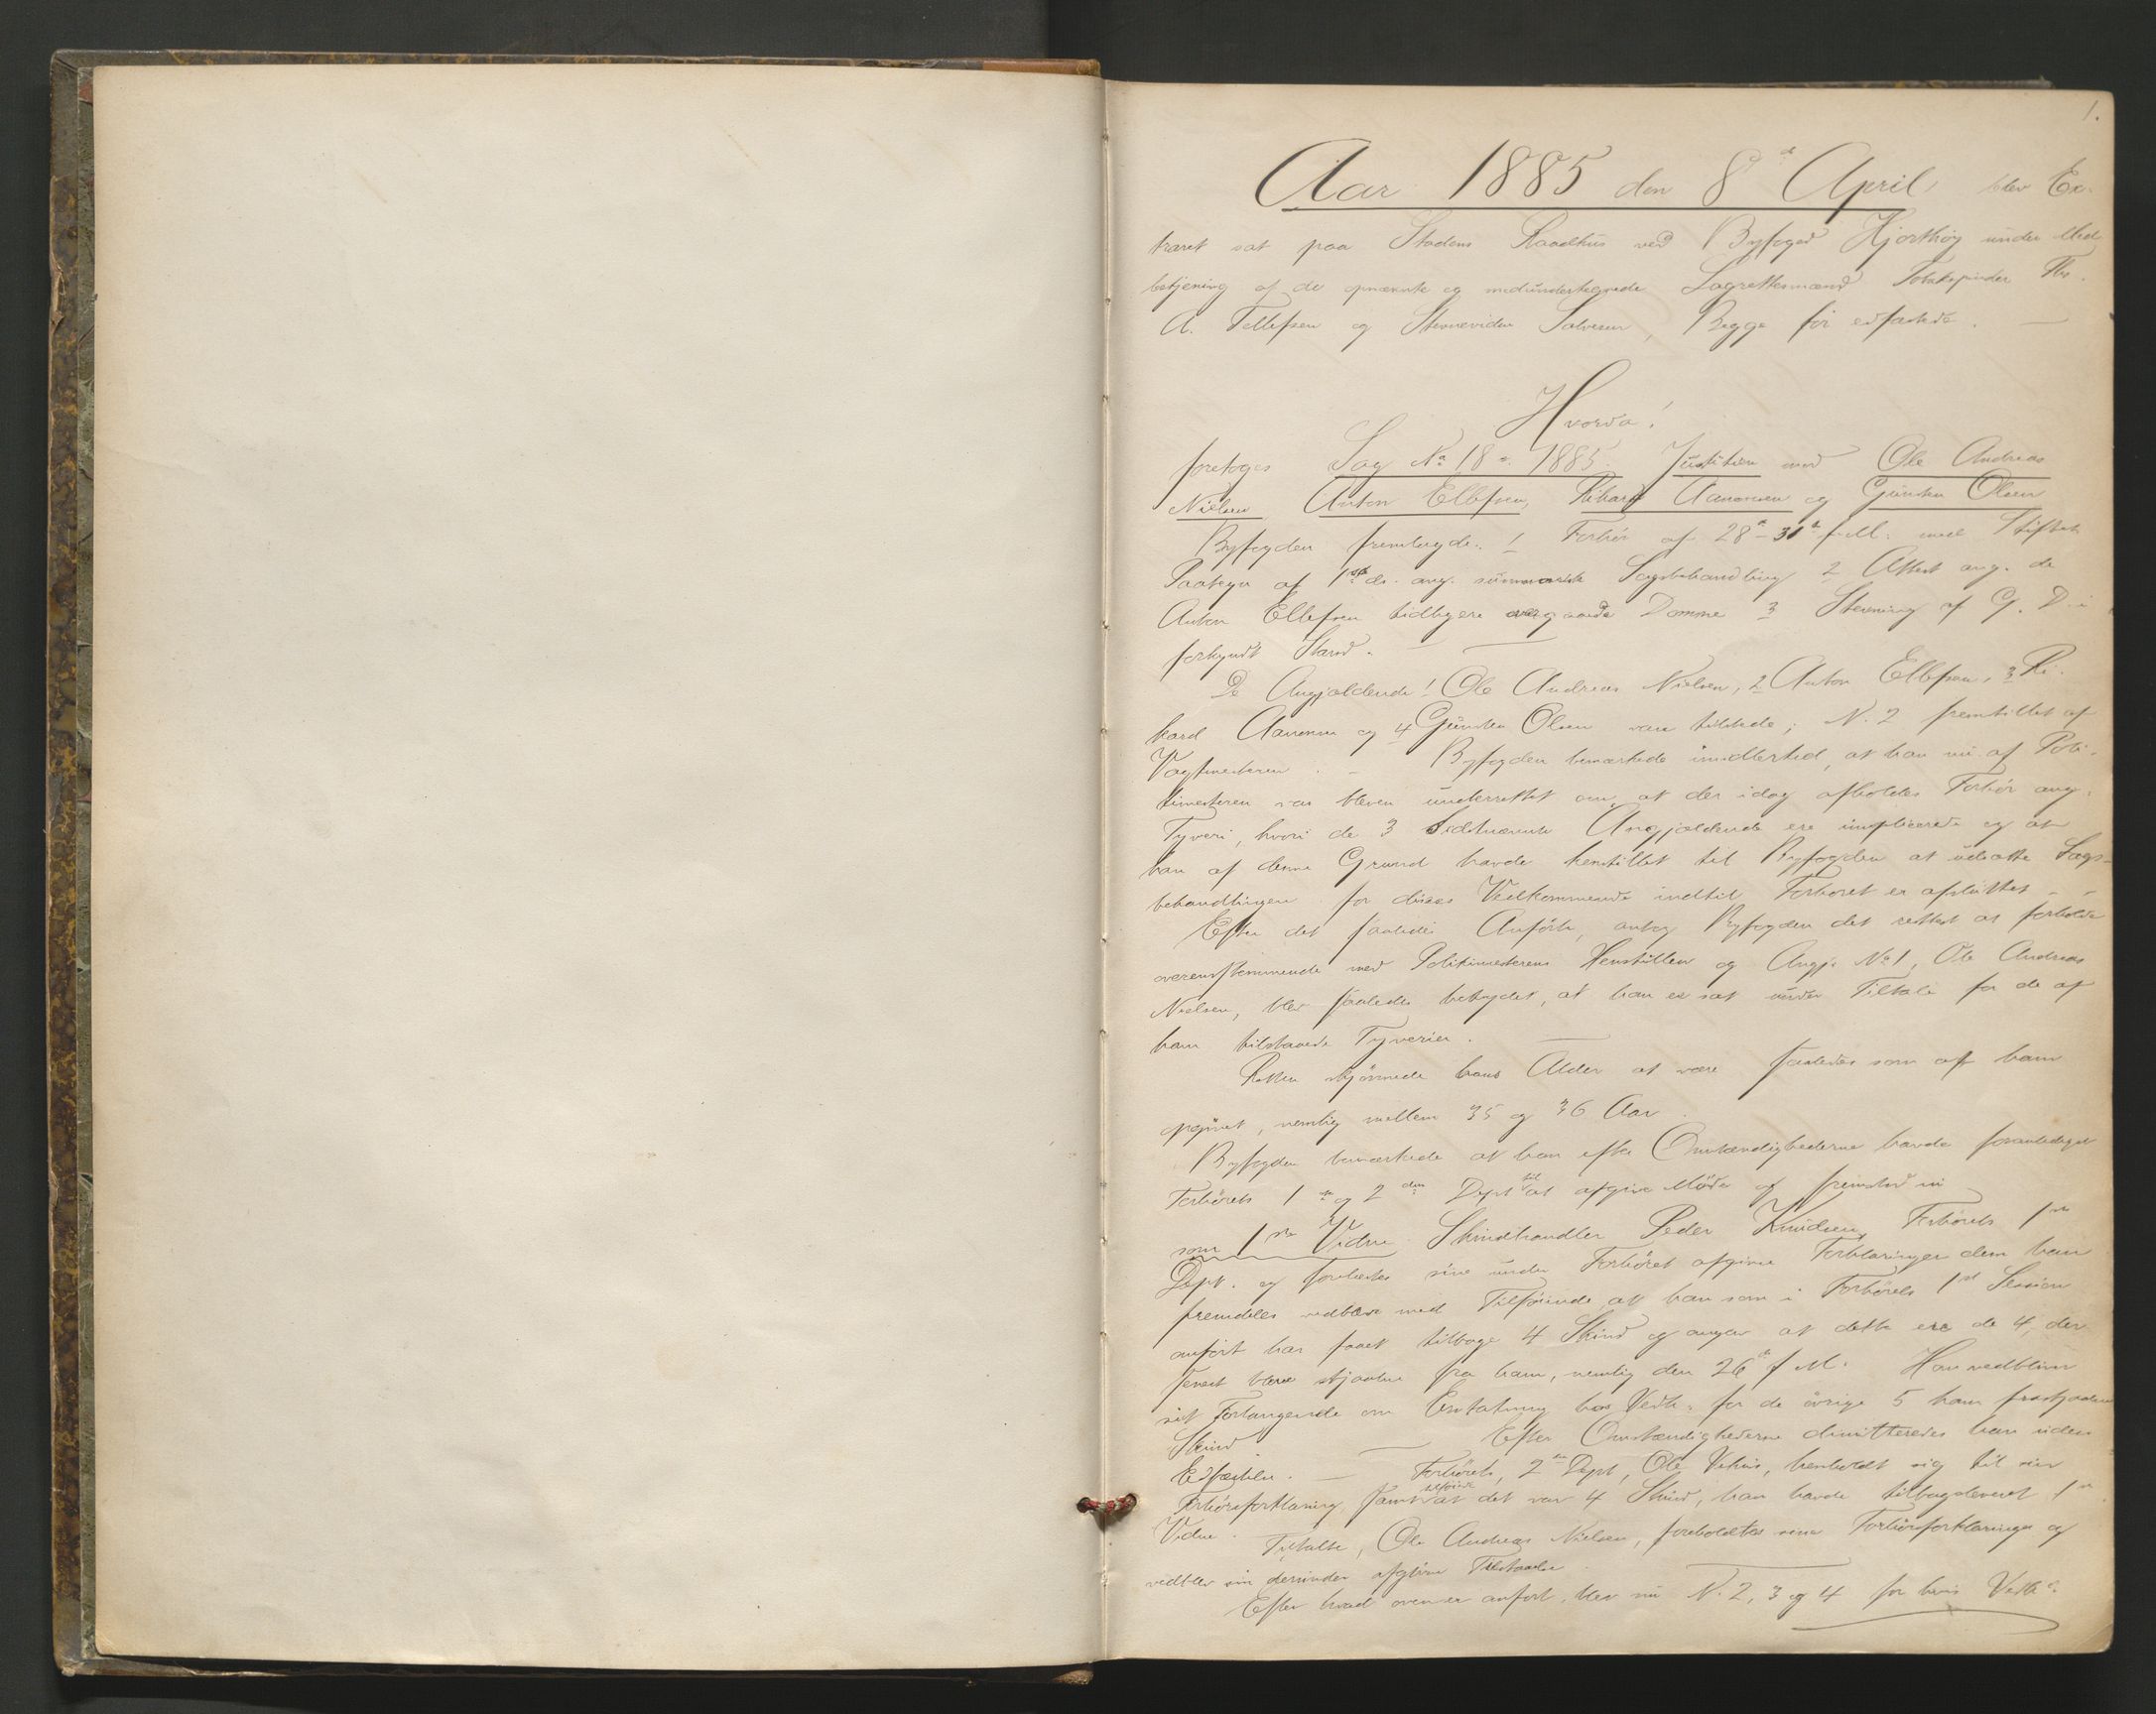 1.
Aar 1885 den 8de April blev Ex-
traret sat paa Stadens Raadhus ved Byfoged Hjorthøy under Med-
betjening af de opnævnte og medundertegnede Lagrettesmænd Tobakspinder Ths.
A. Tellefsen og Stevnevidne Salvesen, Begge før edfæstede.
Hvorda!
foretoges Sag No 18 - 1885 Justitien mod Ole Andreas
Nielsen, Anton Ellefsen, Rikard Aanonsen og Gunsten Olsen
Byfogden fremlagde: 1 Forhør af 28de-31te f. M. med Stiftets
Paategn af 1ste ds. ang. summarisk Sagsbehandling 2 Attest ang. de
Anton Ellefsen tidligere overgaaede Domme 3 Stevning af G. D. i
forkyndt Stand.
De Angjældende 1 Ole Andreas Nielsen, 2 Anton Ellefsen, 3 Ri-
kard Aanonsen og 4 Gunsten Olsen vare tilstede; N. 2 fremstillet af
Vagtmesteren. - Byfogden bemærkede imidlertid, at han nu af Poli-
timesteren var bleven underrettet om, at der idag afholdes Forhør ang.
Tyveri, hvori de 3 sidstnævnte Angjældende ere implicerede og at
han af denne Grund havde henstillet til Byfogden at udsætte Sags-
behandlingen for disses Vedkommende indtil Forhøret er afsluttet -
Efter det saaledes Anførte, antog Byfogden det rettest at forholde
overensstemmende med Politimesterens Henstillen og Angje No 1, Ole Andreas
Nielsen, blev saaledes betydet, at han er sat under Tiltale for de af
ham tilstaaede Tyverier.
Retten skjønnede hans Alder at være saaledes som af ham
opgivet, nemlig mellem 35 og 36 Aar.
Byfogden bemærkede at han efter Omstændighederne havde foranlediget
Forhørets 1ste og 2den Dept til at afgive Møde og fremstod nu
som 1ste Vidne Skindhandler Peder Knudsen, Forhørets 1ste
Dept. og foreholdtes sine under Forhøret afgivne Forklaringer dem han
fremdeles vedblev med Tilføiende at han som i Forhørets 1ste Session
anført har faaet tilbage 4 Skind og angav at dette ere de 4, der
senest bleve stjaalne fra ham, nemlig den 26de f. M. Han vedbliver
sit Forlangende om Erstatning hos Vedk. for de øvrige 5 ham frastjaalne
Skind. Efter Omstændighederne dimitteredes han uden
Edfæstelse. - Forhørets 2den Dept, Ole Vehus, henholdt sig til sin
Forhørsforklaring samt tilføiede at det var 4 Skind, han havde tilbageleveret 1ste
Vidne. Tiltalte, Ole Andreas Nielsen, foreholdtes sine Forhørsforklaringer og
vedblev sin derunder afgivne Tilstaaelse.
Efter hvad oven er anført, blev nu N. 2, 3 og 4 for hvis Vedk.